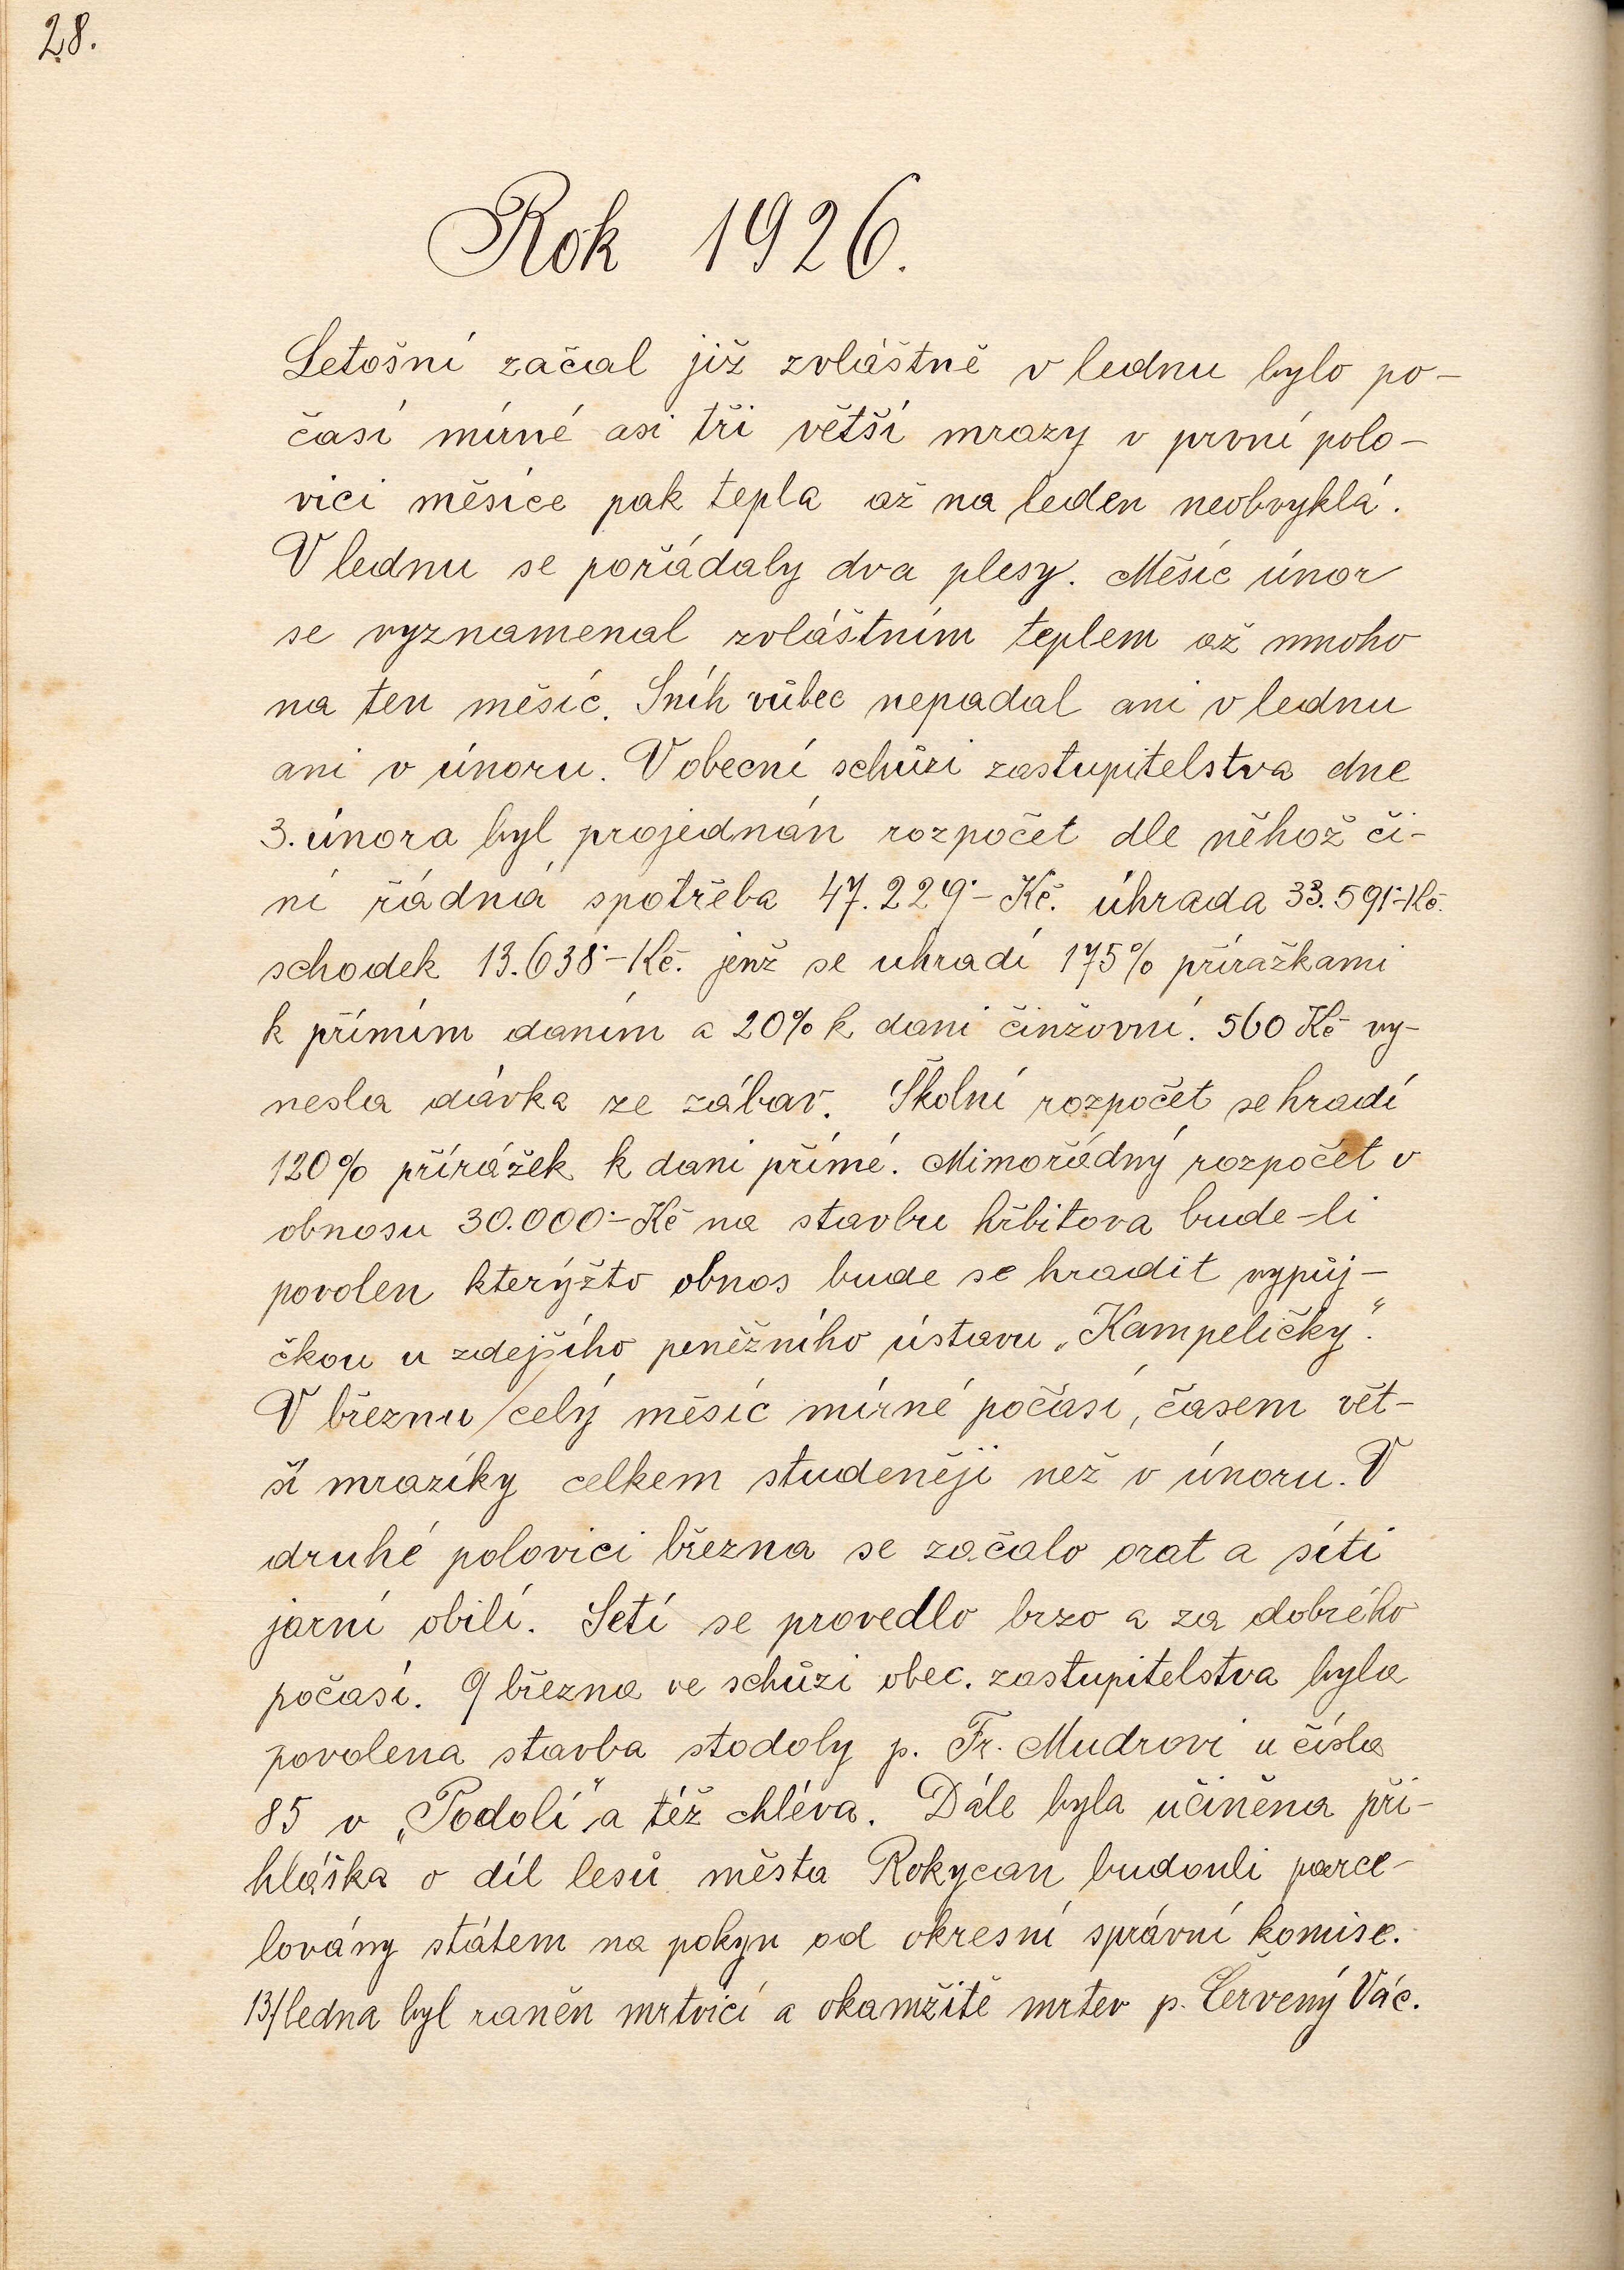 28.
Rok 1926.
Letošní začal již zvláštně v lednu bylo po-
časí mírné asi tři větší mrazy v první polo-
vici měsíce pak tepla až na leden neobvyklá.
V lednu se pořádaly dva plesy. Měsíc únor
se vyznamenal zvláštním teplem až mnoho
na ten měsíc. Sníh vůbec nepadal ani v lednu
ani v únoru. V obecní schůzi zastupitelstva dne
3. února byl projednán rozpočet dle něhož či-
ní řádná spotřeba 47.229·- Kč. úhrada 33.591·-Kč.
schodek 13.638·- Kč. jenž se uhradí 175% přirážkami
k přímím daním a 20% k dani činžovní. 560 Kč vy-
nesla dávka ze zábav. Školní rozpočet se hradí
120% přírážek k dani přímé. Mimořádný rozpočet v
obnosu 30.000·- Kč na stavbu hřbitova bude-li
povolen kterýžto obnos bude se hradit vypůj-
čkou u zdejšího peněžního ústavu „Kampeličky".
V březnu celý měsíc mírné počasí, časem vět-
ší mrazíky celkem studeněji než v únoru. V
druhé polovici března se začalo orat a síti
jarní obilí. Setí se provedlo brzo a za dobrého
počasí. 9 března ve schůzi obec. zastupitelstva byla
povolena stavba stodoly p. Fr. Mudrovi u čísla
85 v „Podolí" a též chléva. Dále byla učiněna při-
hláška o díl lesů města Rokycan budouli parce-
lovány státem na pokyn od okresní správní komise.
13/ledna byl raněn mrtvicí a okamžitě mrtev p. Červený Vác.